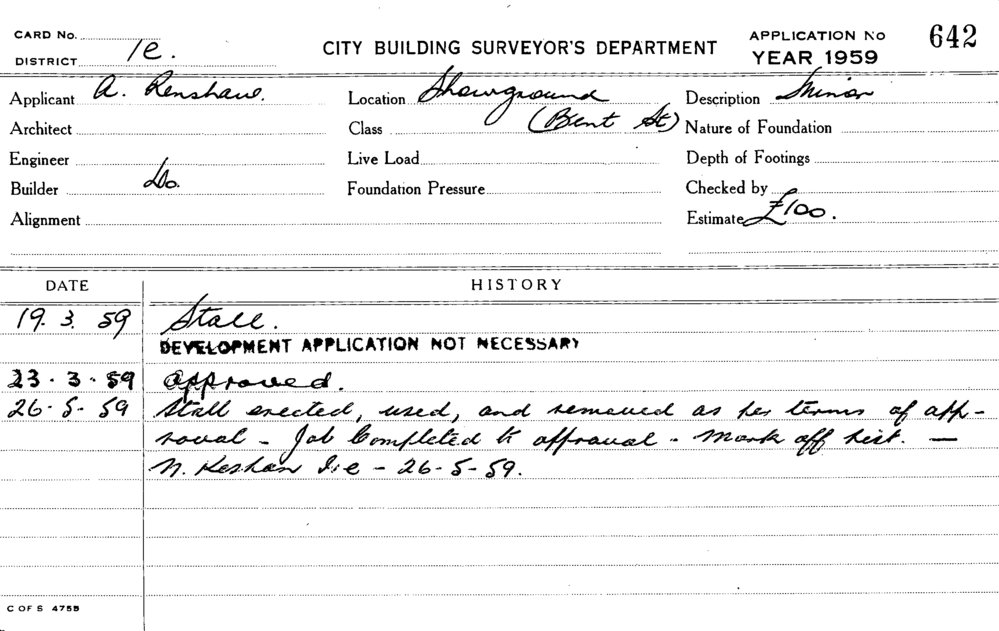 CARD No.
DISTRICT 1e.
CITY BUILDING SURVEYOR'S DEPARTMENT
APPLICATION No 642
YEAR 1959
Applicant A. Renshaw. Location Showground Description Minor
Architect Class (Bent St) Nature of Foundation
Engineer Live Load Depth of Footings
Builder Do. Foundation Pressure Checked by
Alignment Estimate £100.
DATE HISTORY
19. 3. 59 Stall.
DEVELOPMENT APPLICATION NOT NECESSARY
23. 3. 59 Approved.
26. 5. 59 Stall erected, used, and removed as per terms of app-
roval - Job Completed to approval - Mark off list. —
N. Keshan I.e - 26-5-59.
C OF S 475B